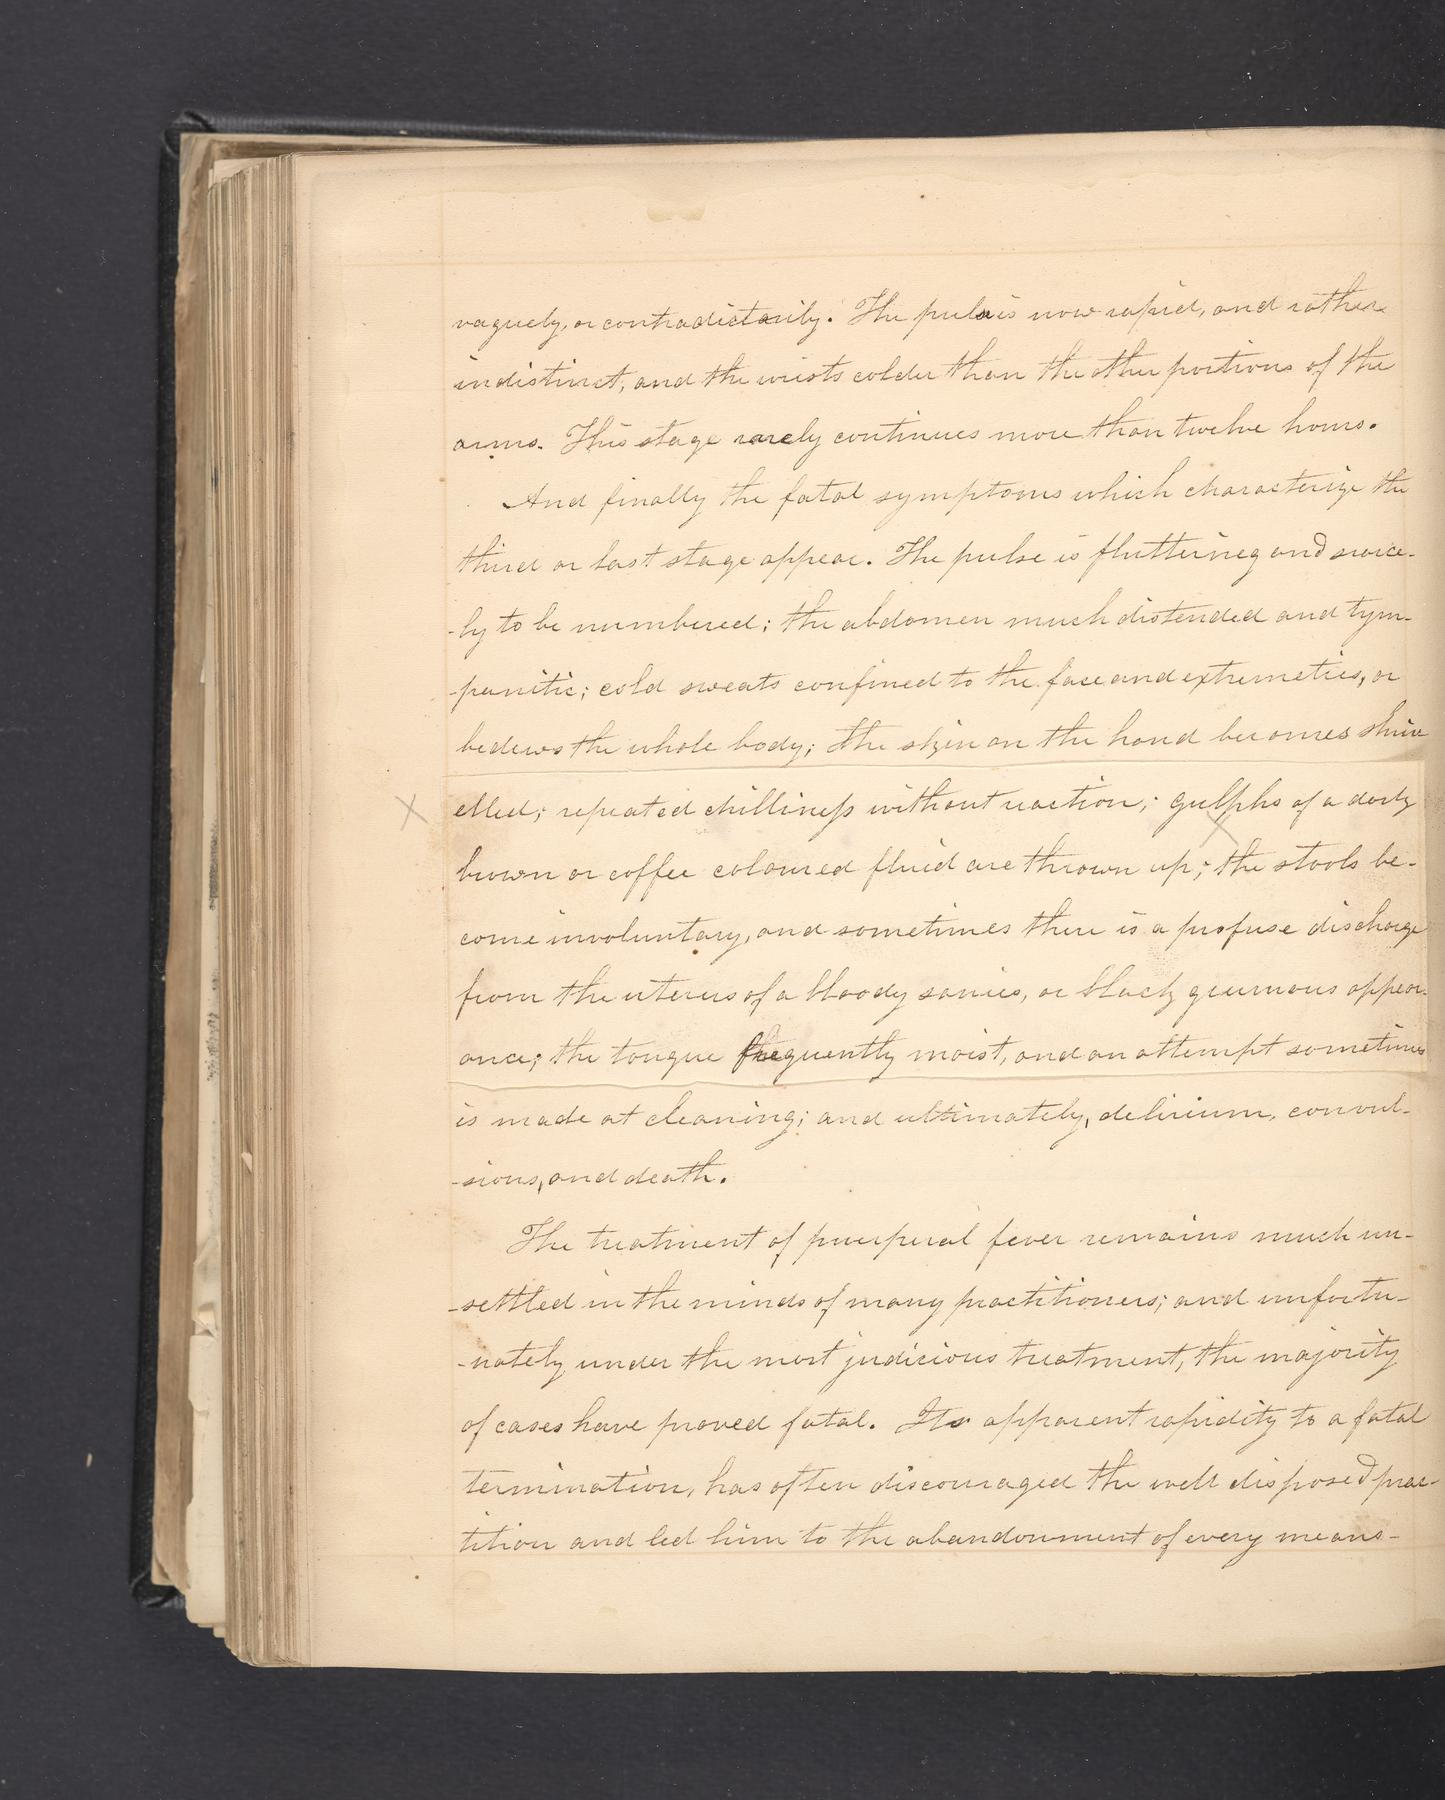 vaguely, or contradictorily. The pulse is now rapid, and rather
indistinct, and the wrists colder than the other portions of the
arms. This stage rarely continues more than twelve hours.
And finally the fatal symptoms which characterize the
third or last stage appear. The pulse is fluttering and scarce-
-ly to be numbered; the abdomen much distended and tym-
-panitic; cold sweats confined to the face and extremeties, or
bedews the whole body; the skin on the hand becomes shriv
elled; repeated chilliness without reaction; gulphs of a dark
brown or coffee coloured fluid are thrown up; the stools be-
come involuntary, and sometimes there is a profuse discharge
from the uterus of a bloody sanies, or black grumous appear-
ance; the tongue frequently moist, and an attempt sometimes
is made at cleaning; and ultimately, delirium, convul-
-sions, and death.
The treatment of puerperal fever remains much un-
-settled in the minds of many practitioners; and unfortu-
-nately under the most judicious treatment, the majority
of cases have proved fatal. Its apparent rapidity to a fatal
termination, has often discouraged the well disposed prac-
tition and led him to the abandonment of every means-